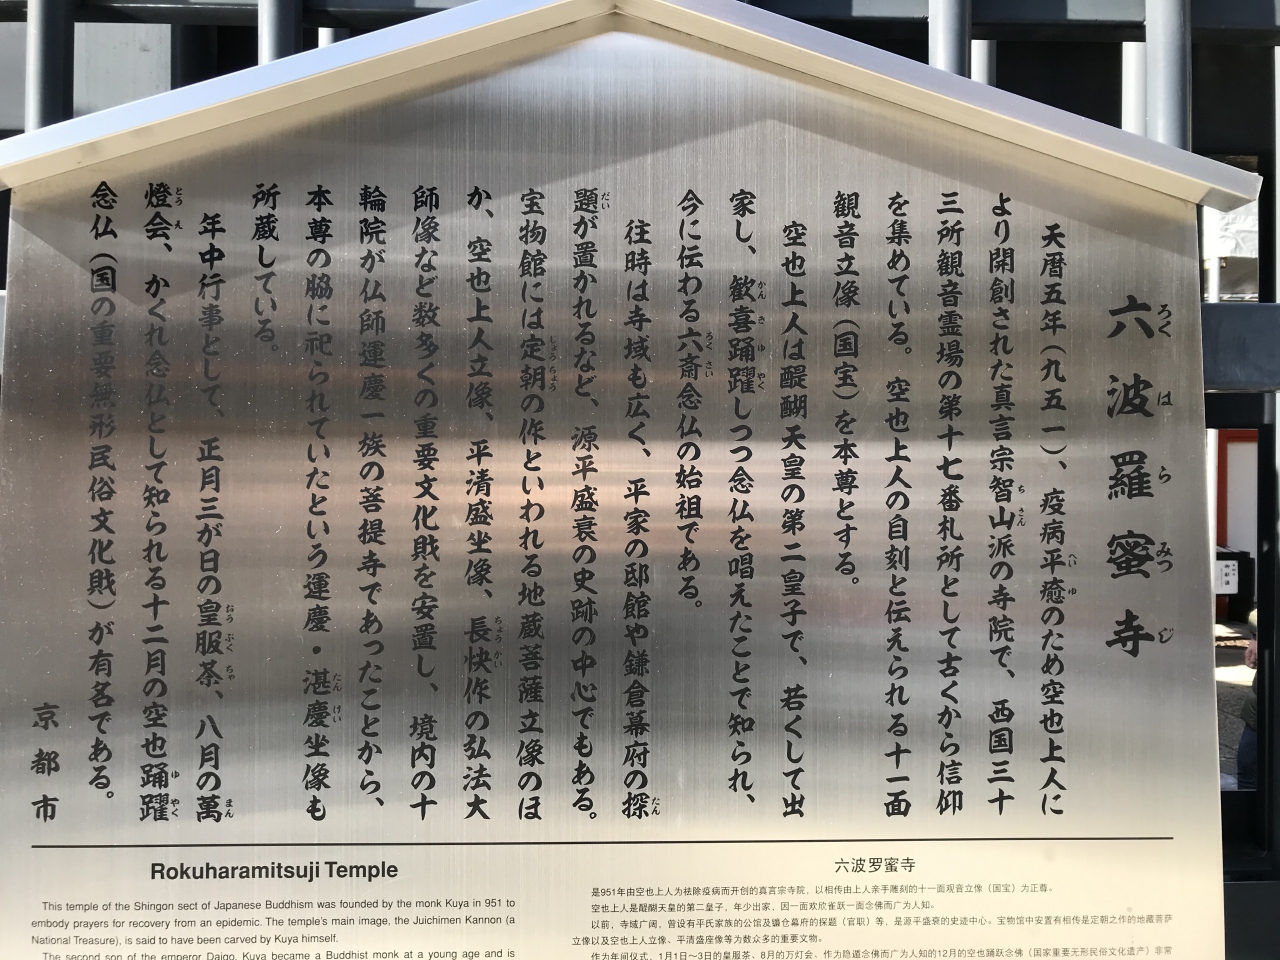 六波羅蜜寺
ろくはらみつじ
天暦五年（九五一）、疫病平癒のため空也上人に
より開創された真言宗智山派の寺院で、西国三十
三所観音霊場の第十七番札所として古くから信仰
を集めている。空也上人の自刻と伝えられる十一面
観音立像（国宝）を本尊とする。
空也上人は醍醐天皇の第二皇子で、若くして出
家し、歓喜踊躍しつつ念仏を唱えたことで知られ、
今に伝わる六斎念仏の始祖である。
往時は寺域も広く、平家の邸館や鎌倉幕府の探
題が置かれるなど、源平盛衰の史跡の中心でもある。
宝物館には定朝の作といわれる地蔵菩薩立像のほ
か、空也上人立像、平清盛坐像、長快作の弘法大
師像など数多くの重要文化財を安置し、境内の十
輪院が仏師運慶一族の菩提寺であったことから、
本尊の脇に祀られていたという運慶・湛慶坐像も
所蔵している。
年中行事として、正月三が日の皇服茶、八月の萬
燈会、かくれ念仏として知られる十二月の空也踊躍
念仏（国の重要無形民俗文化財）が有名である。
京都市
Rokuharamitsuji Temple
This temple of the Shingon sect of Japanese Buddhism was founded by the monk Kuya in 951 to
embody prayers for recovery from an epidemic. The temple's main image, the Juichimen Kannon (a
National Treasure), is said to have been carved by Kuya himself.
The second son of the emperor Daigo, Kuya became a Buddhist monk at a young age and is
六波罗蜜寺
是951年由空也上人为祛除疫病而开创的真言宗寺院，以相传由上人亲手雕刻的十一面观音立像（国宝）为正尊。
空也上人是醍醐天皇的第二皇子，年少出家，因一面欢欣雀跃一面念佛而广为人知。
以前，寺域广阔，曾设有平氏家族的公馆及镰仓幕府的探题（官职）等，是源平盛衰的史迹中心。宝物馆中安置有相传是定朝之作的地藏菩萨
立像以及空也上人立像、平清盛座像等为数众多的重要文物。
作为年间仪式，1月1日～3日的皇服茶、8月的万灯会、作为隐遁念佛而广为人知的12月的空也踊跃念佛（国家重要无形民俗文化遗产）非常